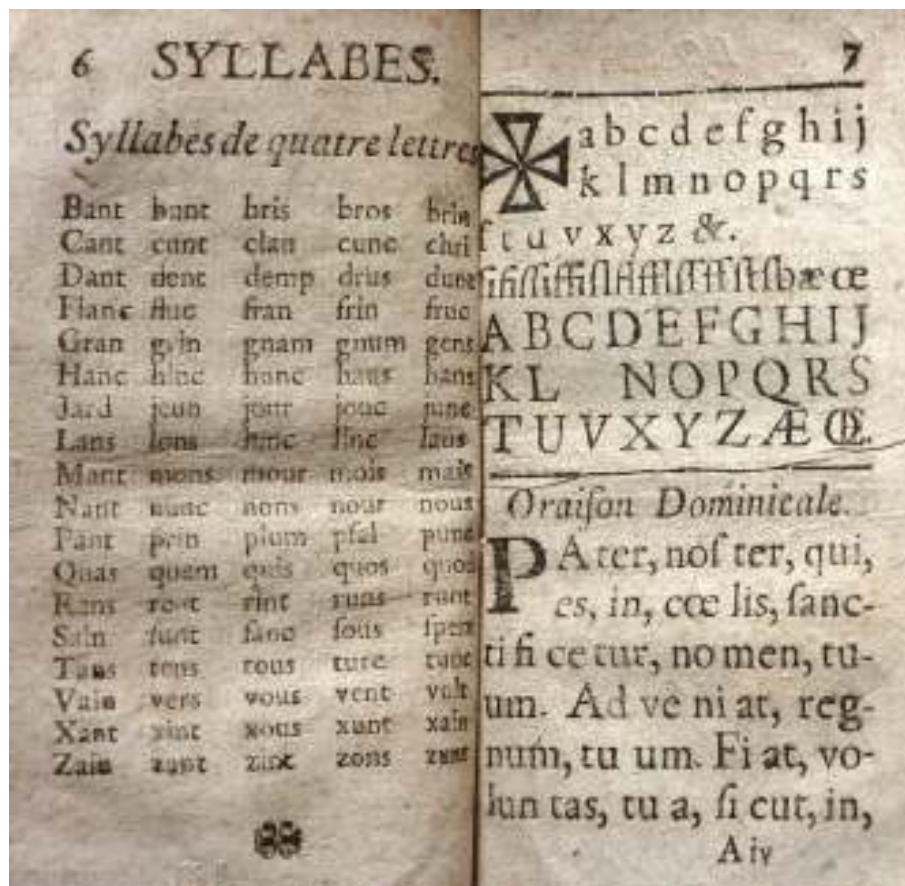 6 SYLLABES.
Syllabes de quatre lettres
Bant bunt bris bros brin
Cant cunt clan cunc chri
Dant dent demp drus dunc
Flanc fluc fran frin fruc
Gran grin gnam gnum gens
Hanc hinc hunc haus hans
Jard jeun jour jouc
Lans lons linc laus
Mant mons mour mois mais
Nant nunc nons nour nous
Pant prin plum pſal punc
Quas quam quis quos quod
Rans rint runs runt
Sain ſunt ſanc ſous
Tans tons tous turc tunc
Vain vers vous vent vult
Xant xint xous xunt xain
Zain zunt zinc zons
7
a b c d e f g h i j
k l m n o p q r s
ſ t u v x y z &.
æ œ
A B C D E F G H I J
K L N O P Q R S
T U V X Y Z Æ Œ.
Oraiſon Dominicale.
PAter, noſ ter, qui,
es, in, cœ lis, ſanc-
ti fi ce tur, no men, tu-
um. Ad ve ni at, reg-
num, tu um. Fi at, vo-
lun tas, tu a, ſi cut, in,
A iv